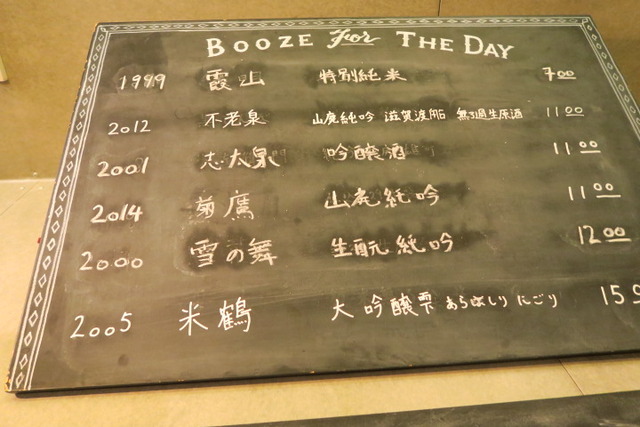 BOOZE for THE DAY
1999 霞山 特別純米 700
2012 不老泉 山廃純吟 滋賀渡船6 無ろ過生原酒 1100
2001 志太泉 吟醸酒 1100
2014 菊鷹 山廃純吟 1100
2000 雪の舞 生酛純吟 1200
2005 米鶴 大吟醸雫 あらばしり にごり